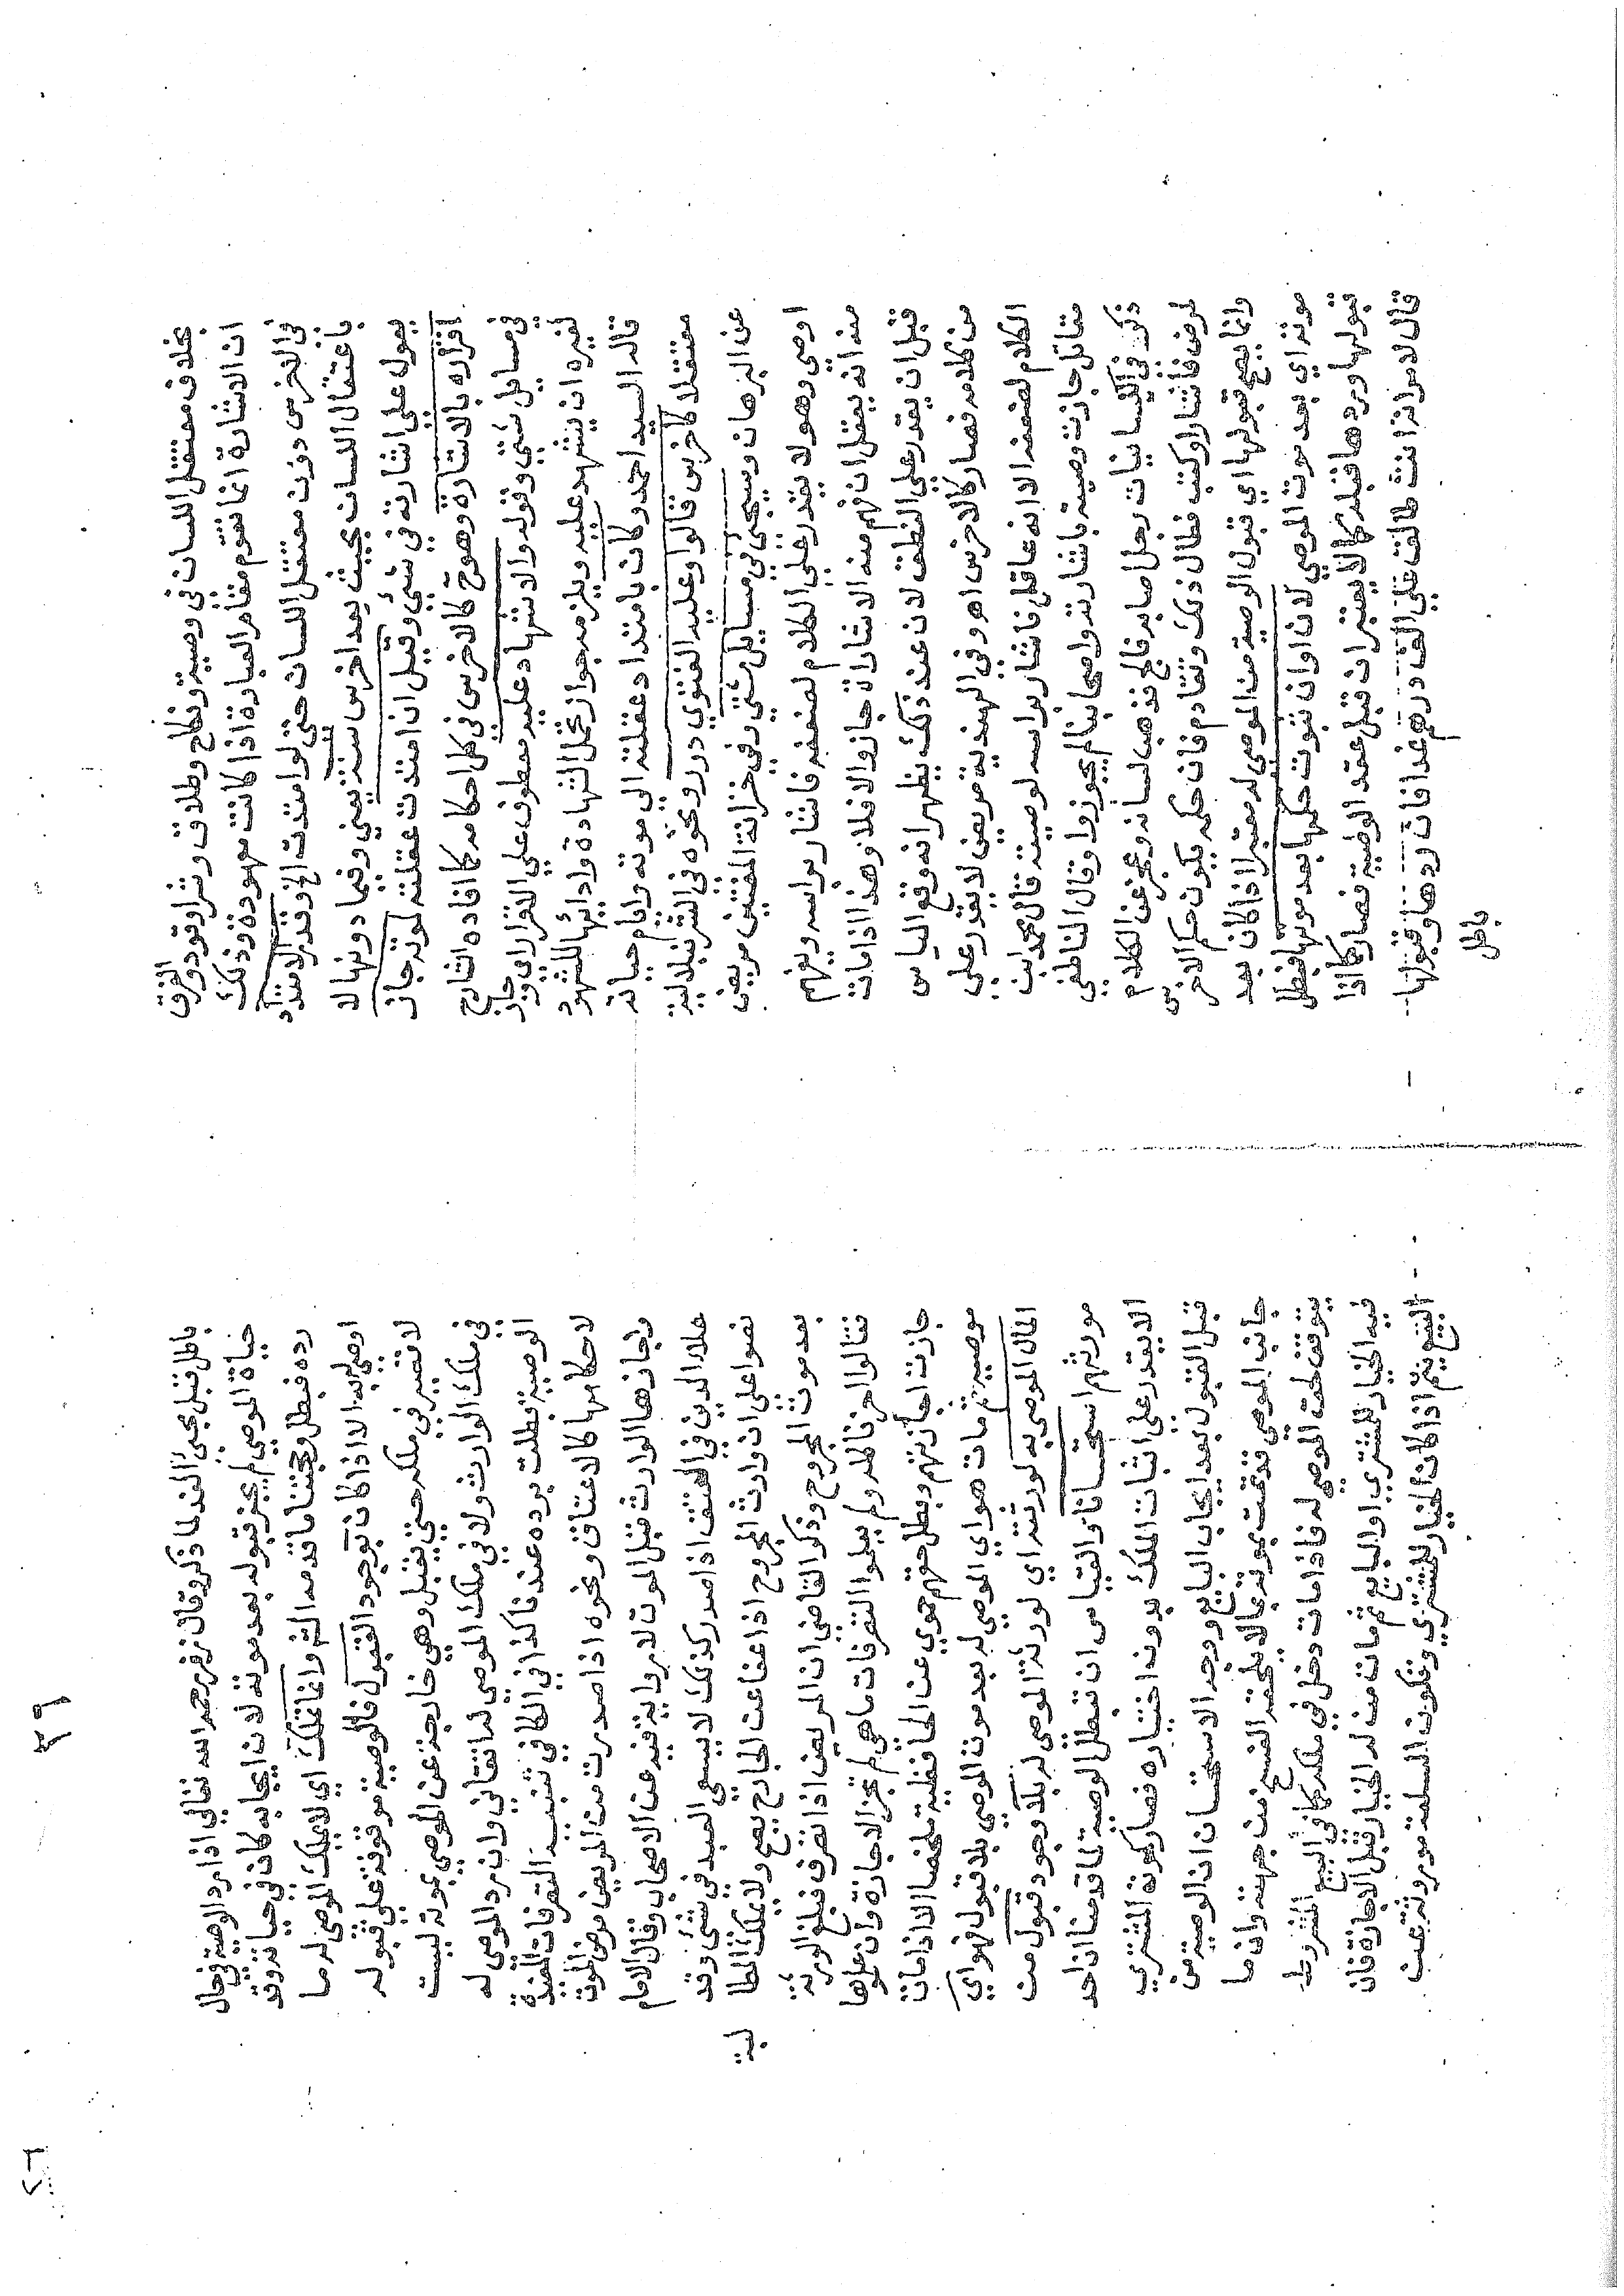 بخلاف معتقل اللسان في وصية ونكاح وطلاق وشراوقود والفرق
ان الاشارة انما تقوم مقام العبارة اذا كانت معهودة وذلك
في الخرس دون معتقل اللسان حتى لو امتدت الخ وقدر الامتداد
باعتقال اللسان بحيث يعد اخرس سنة يعني وفيما دونها لا
يعول على اشارته في شيء وقيل ان امتدت عقلته لموته جاز
اقراره بالاشارة وهو ح كالاخرس في كل احكامه كما افاده الشارح
في مسايل شتي وقوله والاشهاد عليه معطوف علي اقراره اي وجاز
لغيره ان يشهد عليه ويلزمه جواز تحمل الشهادة وادائها للشهود
قاله السيد احمد وكان بامتداد عقلته الي موته وايام حياته
معتقلا كاخرس قالوا وعليه الفتوي درر ونحوه في الشرنبلالية
عن البرهان وسيجئ في مسايل شتي وفي خزانة المفتين مريض
اوصى وهو لا يقدر علي الكلام لضعفه فاشار براسه ويفهم
منه انه يعقل ان فهم منه الاشارة جاز والا فلا وهذا اذا مات
قبل ان يقدر علي النطق لان عند ذلك يظهر انه وقع الياس
من كلامه فصار كالاخرس اهـ وفي الهندية مريض لا يقدر علي
الكلام لضعفه الا انه عاقل فاشار براسه لوصية قال محمد ابن
مقاتل جازت وصيته باشارته واصحابنا لم يجوزوا وقال الناطفي
ذكر في الكيسانيات رجل اصابه فالج فذهب لسانه وعجز عن الكلام
لمرض فاشار او كتب فطال ذلك وتقادم فان حكمه يكون حكم الاخرس
وانما يصح قبولها اي قبول الوصية من الموصى له معتبرا اذا كان بعد
موته اي بعد موت الموصي لان اوان ثبوت حكمها بعد موتها فبطل
قبولها وردها قبله كما لا يعتبران قبل عقد الوصية فصار كما اذا
قال لامراته انت طالق علي الف درهم غدا فان ردها وقبولها
باطل
باطل قبل مجئ الغد لما ذكر وقال زفر رحمه الله تعالي اذا رد الوصية في حال
حياة الموصي لم يجز قبوله بعد موته لان ايجابه كان في حياته وقد
رده فبطل وحجتنا ما قدمه الش وانما تملك اي لا يملك الموصى له ما
اوصي به الا اذا كان بوجود القبول فالوصية موقوفة علي قبوله
لا تعتبر في ملكه حتي يقبل وهي خارجة عن الموصي بموته ليست
في ملك الوارث ولا في ملك الموصي له اتقاني وان رد الموصى له
الوصية بطلت برده عندنا كذا في الكافي تنبيه التصرفات المفيدة
لاحكامها كالاعتاق ونحوه اذا صدرت من المريض مرض الموت
واجازها الوارث قبل الموت لا رواية فيه عن الاصحاب وقال الامام
علاء الدين في العتق اذا صدر كذلك لا يسعى العبد في شئ وقد
نصوا علي ان وارث المجروح اذا عفا عن الجارح يصح ولا يملك المطالبة
بعد موت المجروح وذكر القاضي ان المريض اذا تصرف فبلغ الورثة
فقالوا اجزنا لك ولم يعلموا التصرفات ما هي لم تجز الاجازة وان علموها
جازت اجازتهم وبطل حقهم حموي عن الحافظية ملخصا الا اذا مات
موصيه ثم مات هو اي الموصي له بعد موت الموصي بلا قبول فهو اي
المال الموصي به لورثته اي لورثة الموصى له بلا وجود قبول من
مورثهم استحسانا والقياس ان تبطل الوصية لما قدمنا ان احد
الا يقدر علي اثبات الملك بدون اختياره فصار كموت المشتري
قبل القبول بعد ايجاب البايع ووجه الاستحسان ان الوصية من
جانب الموصي قد تمت بموته بما لا يلحقه الفسخ من جهته وانما
يتوقف لحق الموصي له فاذا مات دخل في ملكه كما في البيع المشروط
فيه الخيار للمشتري او البايع ثم مات من له الخيار قبل الاجازة فان
البيع يتم اذا كان الخيار للمشتري وتكون السلعة موروثة عنه
٣٩